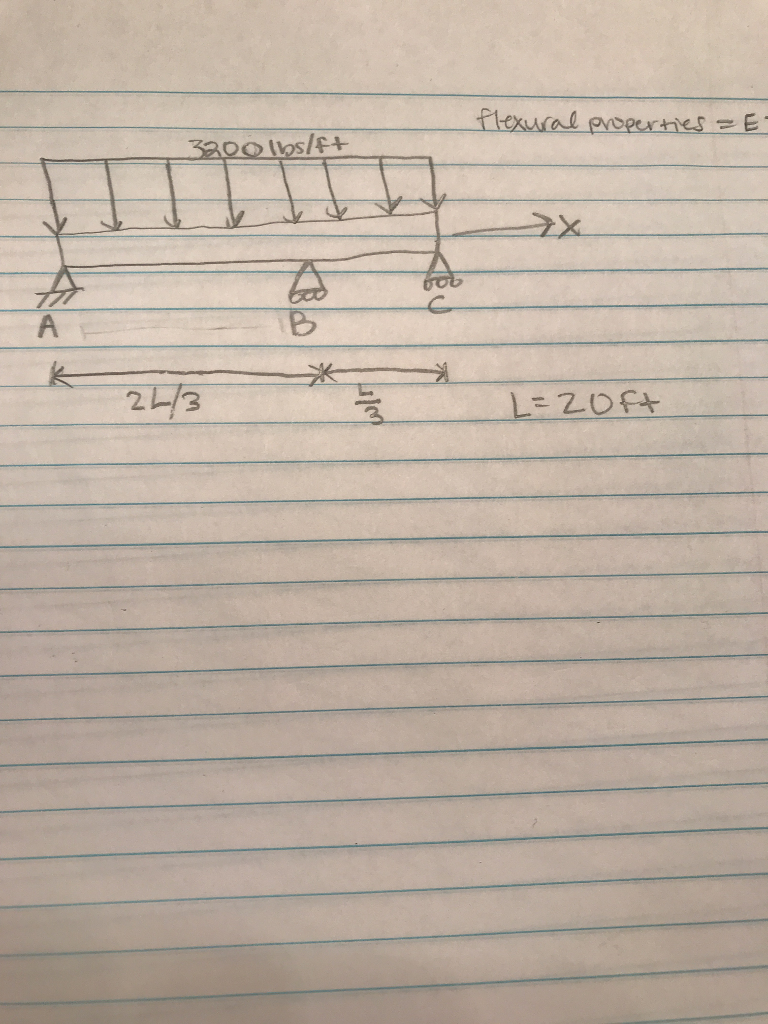 flexural properties = E
3200 lbs/ft
X
A B C
2L/3 L/3 L=20ft